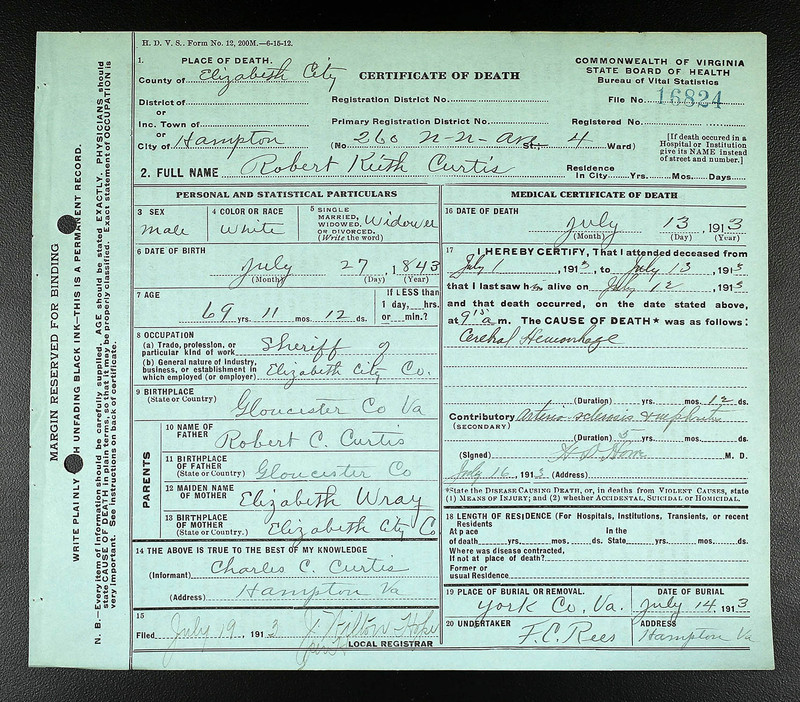 H. D. V. S., Form No. 12, 200M.—6-15-12.
1. PLACE OF DEATH.
County of Elizabeth City
District of
or
Inc. Town of
or
City of Hampton
CERTIFICATE OF DEATH
Registration District No.
Primary Registration District No.
(No. 260 N-N- Ave St.; 4 Ward)
COMMONWEALTH OF VIRGINIA
STATE BOARD OF HEALTH
Bureau of Vital Statistics
File No. 16824
Registered No.
[If death occured in a
Hospital or Institution
give its NAME instead
of street and number.]
2. FULL NAME Robert Keith Curtis Residence In City Yrs. Mos. Days
PERSONAL AND STATISTICAL PARTICULARS
3 SEX
Male
4 COLOR OR RACE
White
5 SINGLE
MARRIED,
WIDOWED,
OR DIVORCED.
(Write the word)
Widower
6 DATE OF BIRTH
July 27, 1843
(Month) (Day) (Year)
7 AGE
69 yrs. 11 mos. 12 ds.
If LESS than
1 day, hrs.
or min.?
8 OCCUPATION
(a) Trade, profession, or
particular kind of work Sheriff of
(b) General nature of Industry,
business, or establishment in
which employed (or employer) Elizabeth City Co.
9 BIRTHPLACE
(State or Country)
Gloucester Co Va
PARENTS
10 NAME OF
FATHER
Robert C. Curtis
11 BIRTHPLACE
OF FATHER
(State or Country) Gloucester Co
12 MAIDEN NAME
OF MOTHER Elizabeth Wray
13 BIRTHPLACE
OF MOTHER
(State or Country.) Elizabeth City Co
14 THE ABOVE IS TRUE TO THE BEST OF MY KNOWLEDGE
(Informant) Charles C. Curtis
(Address) Hampton Va
15
Filed July 19, 1913 Hope
LOCAL REGISTRAR
MEDICAL CERTIFICATE OF DEATH
16 DATE OF DEATH
July 13 1913
(Month) (Day) (Year)
17 I HEREBY CERTIFY, That I attended deceased from
July 1, 1913, to July 13, 1913
that I last saw him alive on July 12, 1913
and that death occurred, on the date stated above,
at 9 15 a m. The CAUSE OF DEATH* was as follows:
Cerebral Hemorrhage
(Duration) yrs. mos. 12 ds.
Contributory Arterio sclerosis
(SECONDARY)
(Duration) 5 yrs. mos. ds.
(Signed) M. D.
July 16, 1913 (Address)
*State the DISEASE CAUSING DEATH, or, in deaths from VIOLENT CAUSES, state
(1) MEANS OF INJURY; and (2) whether ACCIDENTAL, SUICIDAL or HOMICIDAL.
18 LENGTH OF RESIDENCE (For Hospitals, Institutions, Transients, or recent
Residents
At place In the
of death yrs. mos. ds. State yrs. mos. ds.
Where was disease contracted,
If not at place of death?
Former or
usual Residence
19 PLACE OF BURIAL OR REMOVAL.
York Co. Va.
DATE OF BURIAL
July 14, 1913
20 UNDERTAKER
F. C. Rees
ADDRESS
Hampton Va
MARGIN RESERVED FOR BINDING
WRITE PLAINLY WITH UNFADING BLACK INK—THIS IS A PERMANENT RECORD.
N. B.—Every item of information should be carefully supplied. AGE should be stated EXACTLY. PHYSICIANS should
state CAUSE OF DEATH in plain terms, so that it may be properly classified. Exact statement of OCCUPATION is
very important. See instructions on back of certificate.